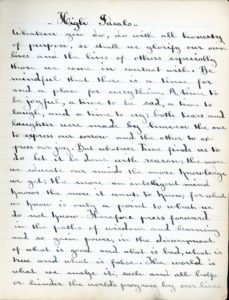 "High Ideals"
Whatever you do, do with all honesty
of purpose, so shall we glorify our own
lives and the lives of others especially
those we come in contact with. Be
mindful that there is a time for
and a place for everything. A time to
be joyful, a time to be sad, a time to
laugh, and a time to cry: both tears and
laughter were made by heaven the one
to express our sorrow and the other to ex-
press our joy. But whatever Time finds us to
do let it be done with reason, the more
we educate our minds the more knowledge
we get, the more an intelligent mind
knows the more it wants to know, for what
we know is only a point to what we
do not know. Therefore press forward
in the paths of wisdom and learning
and so gain power, in the discernment
of what is good and what is bad, what is
true and what is false. The world is
what we make it, each and all help
or hinder the worlds progress by our lives